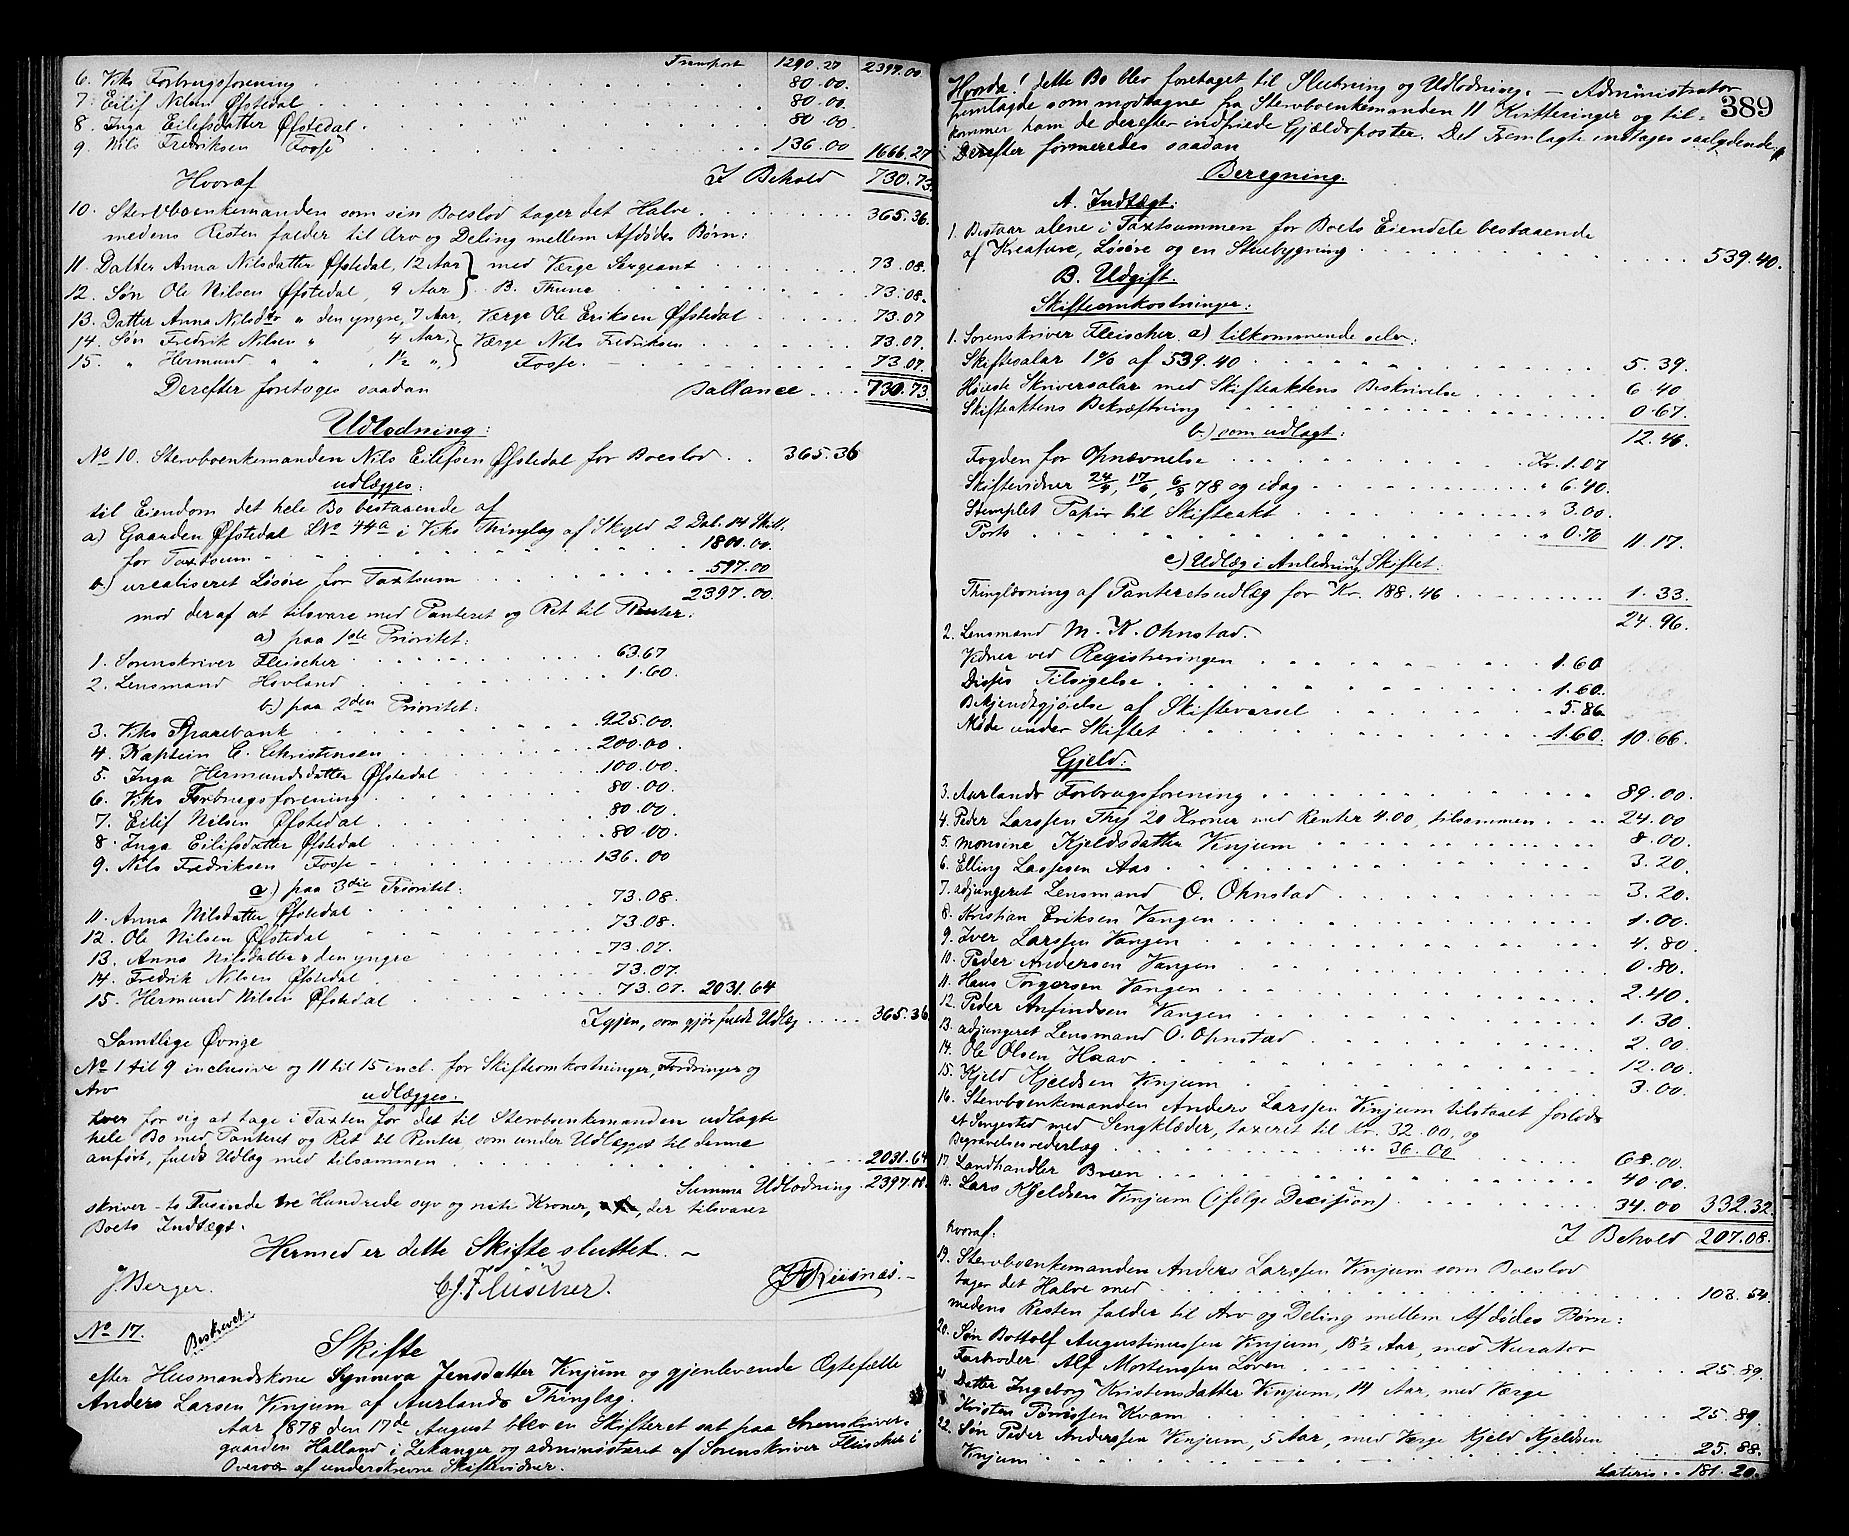 Transport 1290.27 2397.00
6. Viks Forbrugsforening . . . 80.00.
7. Eilif Nilsen Øfstedal . . . 80.00.
8. Inga Eilifsdatter Øfstedal . . . 80.00
9. Nils Fredriksen Fosse . . . 136.00 1666.27
Hvoraf I Behold 730.73
10. Stervboenkemanden som sin Boeslod tager det Halve . . . 365.36.
medens Resten falder til Arv og Deling mellem Afdødes Børn:
11. Datter Anna Nilsdatter Øfstedal, 12 Aar } med Værge Sergeant . . . 73.08.
12. Søn Ole Nilsen Øfstedal, 9 Aar } B. Thune . . . 73.08.
13. Datter Anna Nilsdtr " den yngre, 7 Aar, Værge Ole Eriksen Øfstedal . . . 73.07
14. Søn Fredrik Nilsen " , 4 Aar, } Værge Nils Fredriksen . . . 73.07.
15. " Hermund " " , 1½ ", } Fosse. . . . 73.07.
Derefter foretoges saadan Ballance . . . 730.73.
Udlodning:
No 10. Stervboenkemanden Nils Eilefsen Øfstedal for Boeslod . . 365.36
udlægges:
til Eiendom det hele Bo bestaaende af
a) Gaarden Øfstedal LNo 44a i Viks Thinglag af Skyld 2 Dal. 14 Skill.
for Taxtsum . . . 1800.00.
b) urealiseret Løsøre for Taxtsum . . . 597.00
2397.00.
mod deraf at tilsvare med Panteret og Ret til Renter:
a) paa 1ste Prioritet:
1. Sorenskriver Fleischer . . . 63.67
2. Lensmand Hovland . . . 1.60.
b) paa 2den Prioritet:
3. Viks Sparebank . . . 925.00.
4. Kaptein C. Christensen . . . 200.00
5. Inga Hermundsdatter Øfstedal . . . 100.00.
6. Viks Forbrugsforening . . . 80.00.
7. Eilif Nilsen Øfstedal . . . 80.00.
8. Inga Eilifsdatter Øfstedal . . . 80.00.
9. Nils Fredriksen Fosse . . . 136.00
c) paa 3die Prioritet:
11. Anna Nilsdatter Øfstedal . . . 73.08.
12. Ole Nilsen Øfstedal . . . 73.08.
13. Anna Nilsdatter " den yngre . . . 73.07.
14. Fredrik Nilsen Øfstedal . . . 73.07.
15. Hermund Nilsen Øfstedal . . . 73.07. 2031.64
Igjen, som gjør fuldt Udlæg . . . 365.36
Samtlige Øvrige
No 1 til 9 inclusive og 11 til 15 incl. for Skifteomkostninger, Fordringer og
Arv udlægges:
hver for sig at tage i Taxten for det til Stervboenkemanden udlagte
hele Bo med Panteret og Ret til Renter, som under Udlægget til denne
anført, fuldt Udlæg med tilsammen . . . 2031.64
Summa Udlodning . 2397.00.
skriver to Tusinde tre Hundrede syv og niti Kroner, der tilsvarer
Boets Indtægt.
Hermed er dette Skifte sluttet. ~
J. Berger. C. J. Fleischer. Riisnæs.
No 17. Beskrevet.
Skifte
efter Husmandskone Synneva Jensdatter Vinjum og gjenlevende Ægtefælle
Anders Larsen Vinjum af Aurlands Thinglag.
Aar 1878 den 17de August blev en Skifteret sat paa Sorenskriver-
gaarden Halland i Lekanger og administreret af Sorenskriver Fleischer i
Overvær af underskrevne Skiftevidner.
389
Hvorda! dette Bo blev foretaget til Slutning og Udlodning. — Administrator
fremlagde som modtagne fra Stervboenkemanden 11 Kvitteringer og til-
kommer ham de derefter indfriede Gjældsposter. Det Fremlagte indtages saalydende.
Derefter formeredes saadan
Beregning.
A. Indtægt:
1. Bestaar alene i Taxtsummen for Boets Eiendele bestaaende
af Kreature, Løsøre og en Stuebygning . . . 539.40.
B. Udgift.
Skifteomkostninger:
1. Sorenskriver Fleischer. a) tilkommende selv:
Skiftesalar 1 % af 539.40 . . . 5.39.
Høieste Skriversalar med Skifteaktens Beskrivelse . . . 6.40
Skifteaktens Bekræftning . . . 0.67.
b) som udlagt: 12.46
Fogden for Opnævnelse . . . Kr. 1.07
Skiftevidner 24/4, 17/6, 6/8 78 og idag . . . " 6.40.
Stemplet Papir til Skifteakt . . . " 3.00.
Porto . . . " 0.70 11.17.
c) Udlæg i Anledning af Skiftet:
Thinglæsning af Panteretsudlæg for Kr. 188.46 . . . 1.33.
24.96.
2. Lensmand M. K. Ohnstad.
Vidner ved Registreringen . . . 1.60
Disses Tilsigelse . . . 1.60.
Bekjendtgjørelse af Skiftevarsel . . . 5.86
Møde under Skiftet . . . 1.60. 10.66.
Gjeld:
3. Aurlands Forbrugsforening . . . 89.00.
4. Peder Larssen Thij 20 Kroner med Renter 4.00, tilsammen . . . 24.00
5. Monsine Kjeldsdatter Vinjum . . . 8.00.
6. Elling Lassesen Aas . . . 3.20.
7. adjungeret Lensmand O. Ohnstad . . . 3.20.
8. Kristian Eriksen Vangen . . . 1.00.
9. Iver Larssen Vangen . . . 4.80.
10. Peder Andersen Vangen . . . 0.80.
11. Hans Torgersen Vangen . . . 2.40.
12. Peder Anfindsen Vangen . . . 1.30.
13. adjungeret Lensmand O. Ohnstad . . . 2.00.
14. Ole Olsen Haav . . . 12.00.
15. Kjeld Kjeldsen Vinjum . . . 3.00.
16. Stervboenkemanden Anders Larssen Vinjum tilstaaet forlods
et Sengested med Sengklæder, taxeret til Kr. 32.00, og
Begravelsesvederlag . . . " 36.00 68.00.
17. Landhandler Brun . . . 40.00.
18. Lars Kjeldsen Vinjum (ifølge Decision) . . . 34.00 332.32.
hvoraf: I Behold 207.08.
19. Stervboenkemanden Anders Larssen Vinjum som Boeslod
tager det Halve med . . . 103.54.
medens Resten falder til Arv og Deling mellem Afdødes Børn:
20. Søn Bottolf Augustinussen Vinjum, 18½ Aar, med Kurator
Farbroder Alf Mortenssen Loven . . . 25.89.
21. Datter Ingeborg Kristensdatter Vinjum, 14 Aar, med Værge
Kristen Tønnssen Kvam . . . 25.89.
22. Søn Peder Anderssen Vinjum, 5 Aar, med Værge Kjeld Kjeldsen
Vinjum . . . 25.88.
Lateris . . 181.20.